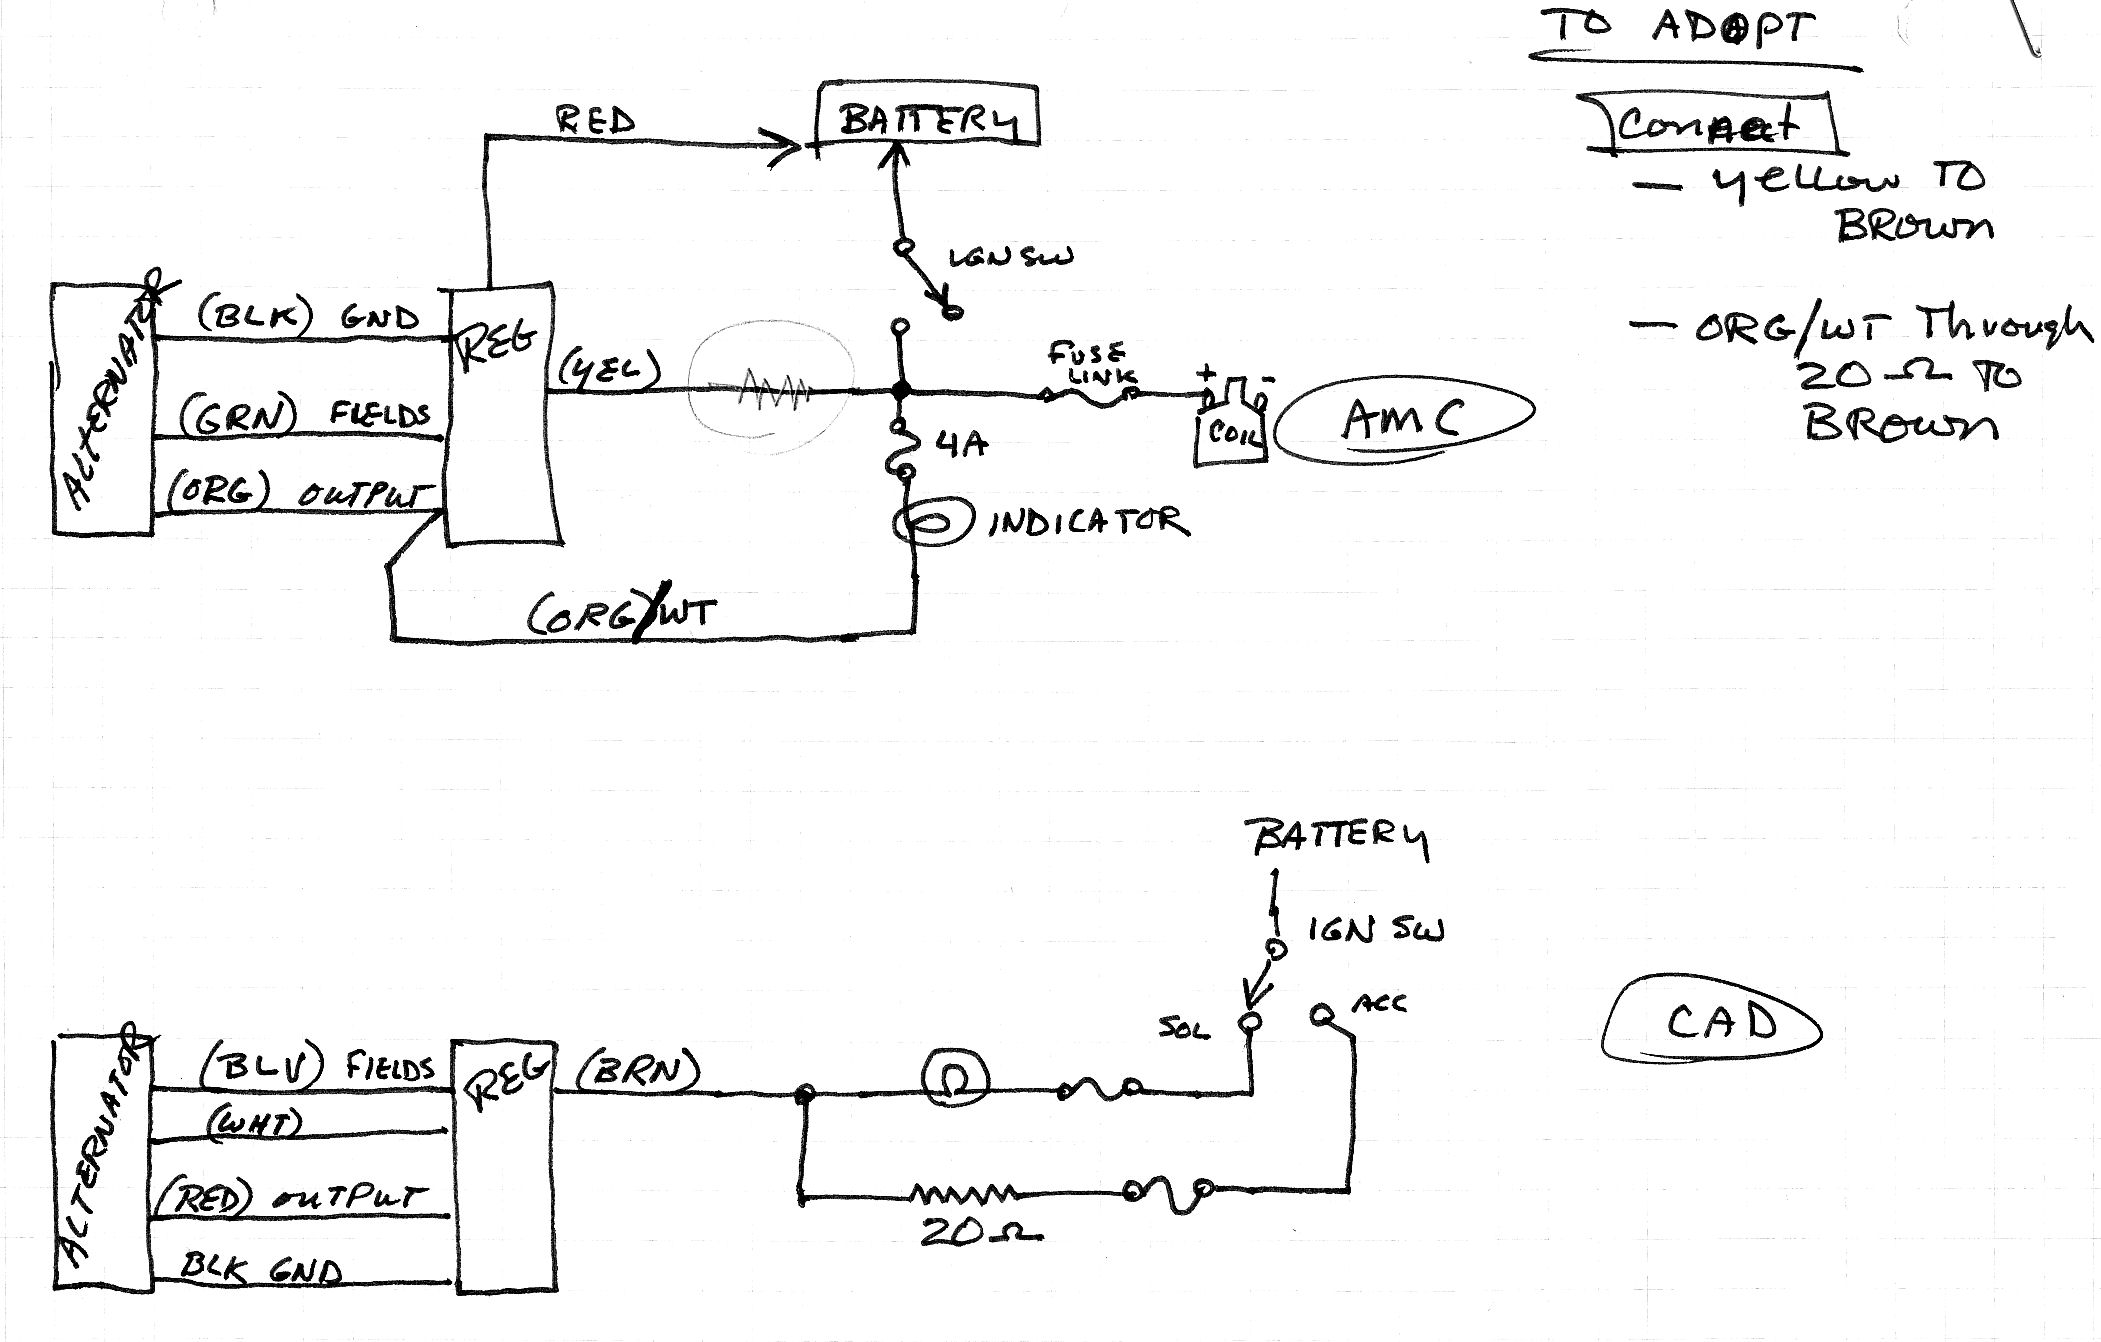 TO ADAPT
Connect
— Yellow TO
BROWN
— ORG/WT Through
20 Ω TO
BROWN
RED
BATTERY
IGN SW
ALTERNATOR
(BLK) GND
REG
(YEL)
FUSE
LINK
+ -
COIL
AMC
(GRN) FIELDS
4A
(ORG) OUTPUT
INDICATOR
(ORG)/WT
BATTERY
IGN SW
SOL
ACC
CAD
ALTERNATOR
(BLV) FIELDS
REG
(BRN)
(WHT)
(RED) OUTPUT
20 Ω
BLK GND